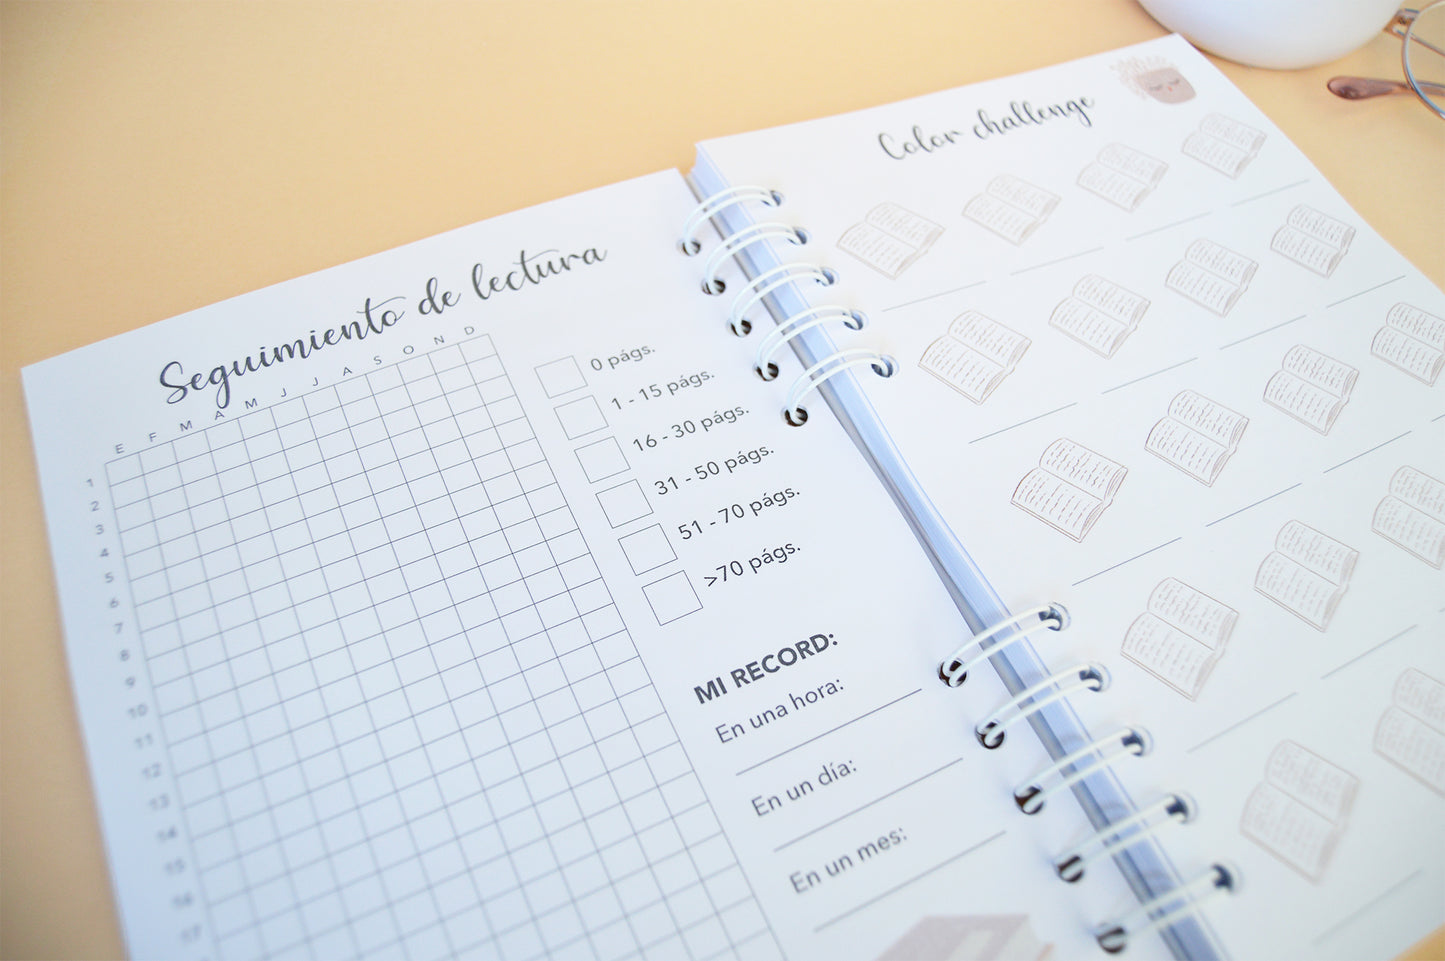 Seguimiento de lectura
E F M A M J J A S O N D
1
2
3
4
5
6
7
8
9
10
11
12
13
14
15
16
17
0 págs.
1 - 15 págs.
16 - 30 págs.
31 - 50 págs.
51 - 70 págs.
>70 págs.
MI RECORD:
En una hora:
En un día:
En un mes:
Color challenge